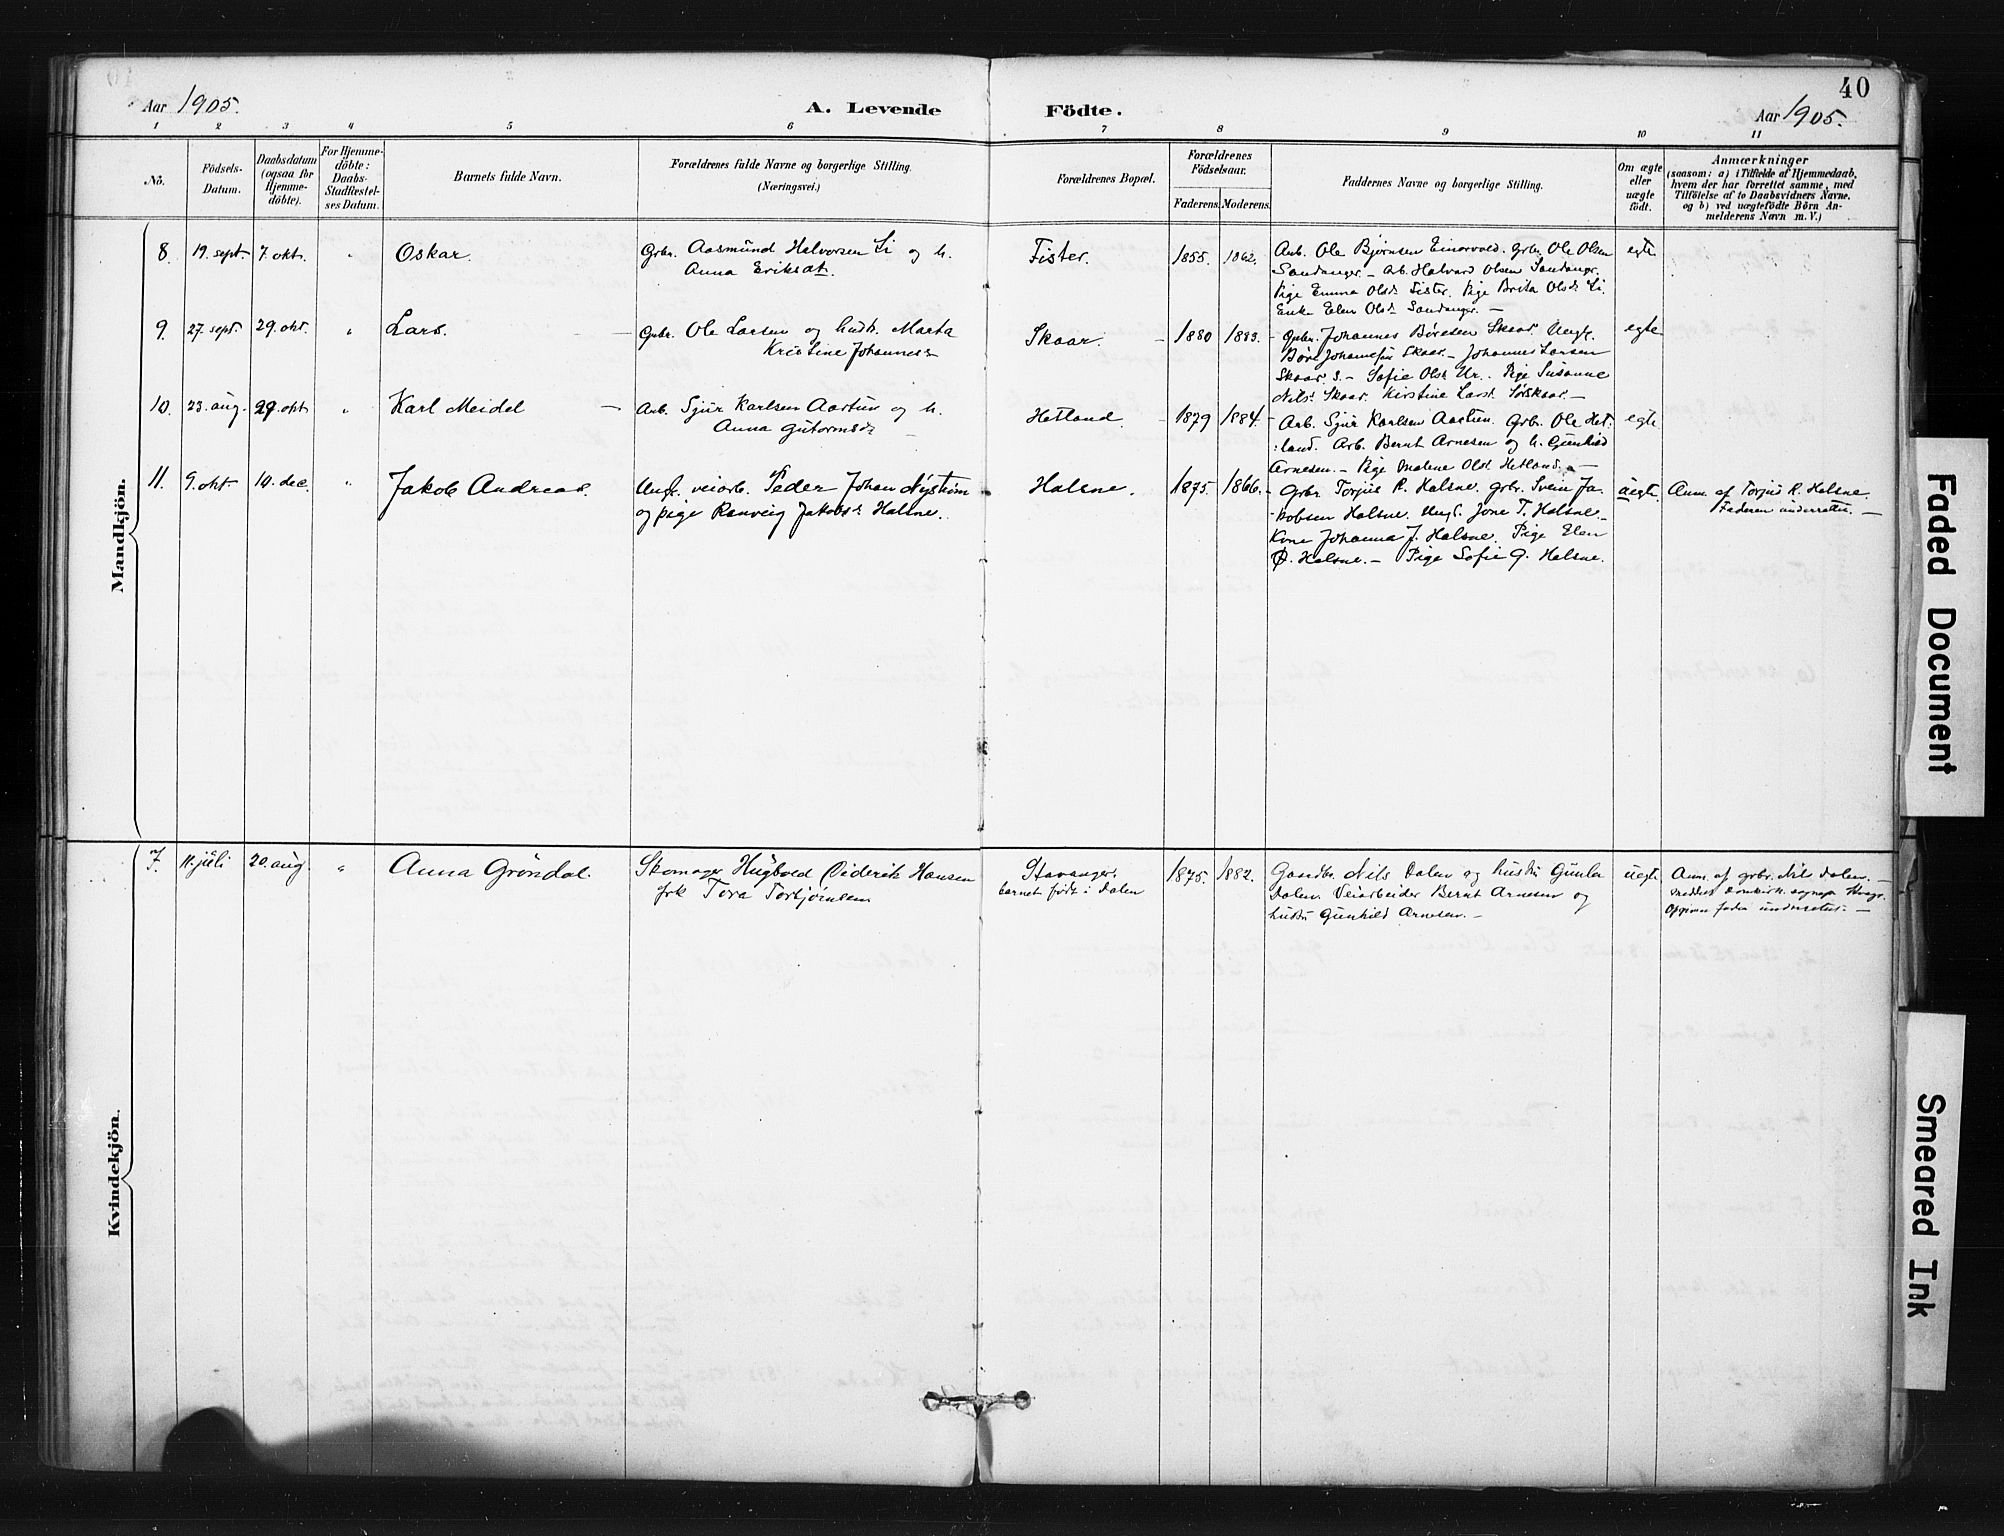 40
Aar 1905.
A. Levende Födte.
Aar 1905.
1 2 3 4 5 6 7 8 9 10 11
No.
Födsels-Datum.
Daabsdatum (ogsaa for Hjemme-döbte).
For Hjemme-döbte: Daabs-Stadfestel-ses Datum.
Barnets fulde Navn.
Forældrenes fulde Navne og borgerlige Stilling. (Næringsvei.)
Forældrenes Bopæl.
Forældrenes Födselsaar.
Faderens. Moderens.
Faddernes Navne og borgerlige Stilling.
Om ægte eller uægte födt.
Anmærkninger
(saasom: a) i Tilfælde af Hjemmedaab,
hvem der har forrettet samme, med
Tilföielse af to Daabsvidners Navne,
og b) ved uægtefödte Börn An-
melderens Navn m. V.)
Mandkjön.
8. 19. sept. 7. okt. " Oskar. Grbr. Aasmund Halvorsen Li og h.
Anna Eriksdt.
Fister. 1855. 1862.
Arb. Ole Bjørnsen Einarvold. Grbr. Ole Olsen
Sandanger. – Arb. Halvard Olsen Sandangr.
Pige Emma Olsd. Fister. Pige Brita Olsd. Li.
Enke Elen Olsd. Sandangr. –
egte
9. 27. sept. 29. okt. " Lars. – Grbr. Ole Larsen og hudh. Marta
Kristine Johannesd
Skaar. – 1880 1883.
Grbr. Johannes Børesen Skaar. Ungk.
Børe Johannesen Skaar. – Johannes Larsen
Skaar. s. – Sofie Olsd. Ur. Pige Susanne
Nilsd. Skaar. Kirstine Larsd. Sørskaar. –
egte
10. 23. aug. 29. okt " Karl Meidel – Arb. Sjur Karlsen Aartun og h.
Anna Gutormsd. –
Hetland. – 1879 1884.
Arb. Sjur Karlsen Aartun. Grbr. Ole Het-
land. Arb. Bernt Arnesen og h. Gunhild
Arnesen. – Pige Malene Olsd. Hetland. –
egte
11. 9. okt. 10. dec. " Jakob Andreas. Ungk. veiarb. Peder Johan Nyström
og pige Ranveig Jakobsd. Halsne.
Halsne. 1875. 1866.
Grbr. Torjus R. Halsne. grbr. Svein Ja-
kobsen Halsne. Ungk. Jone T. Halsne. –
Kone Johanna J. Halsne. Pige Elen
Ø. Halsne. – Pige Sofie G. Halsne.
uegte. Anm. af Torjus R. Halsne.
Faderen underrettet. –
Kvindekjön.
7. 11. juli 20. aug. " Anna Gröndal. Skomager Hugbold Diderik Hansen
frk Tora Torbjørnsen
Stavanger.
barnet født i Dalen
1875. 1882.
Gaardbr. Nils Dalen og hustru Gunla
Dalen. Veiarbeider Bernt Arnesen og
hustru Gunhild Arnesen. –
uegte Anm. af grbr. Nils Dalen. –
Opgiven fader underrettet. –
Faded Document
Smeared Ink